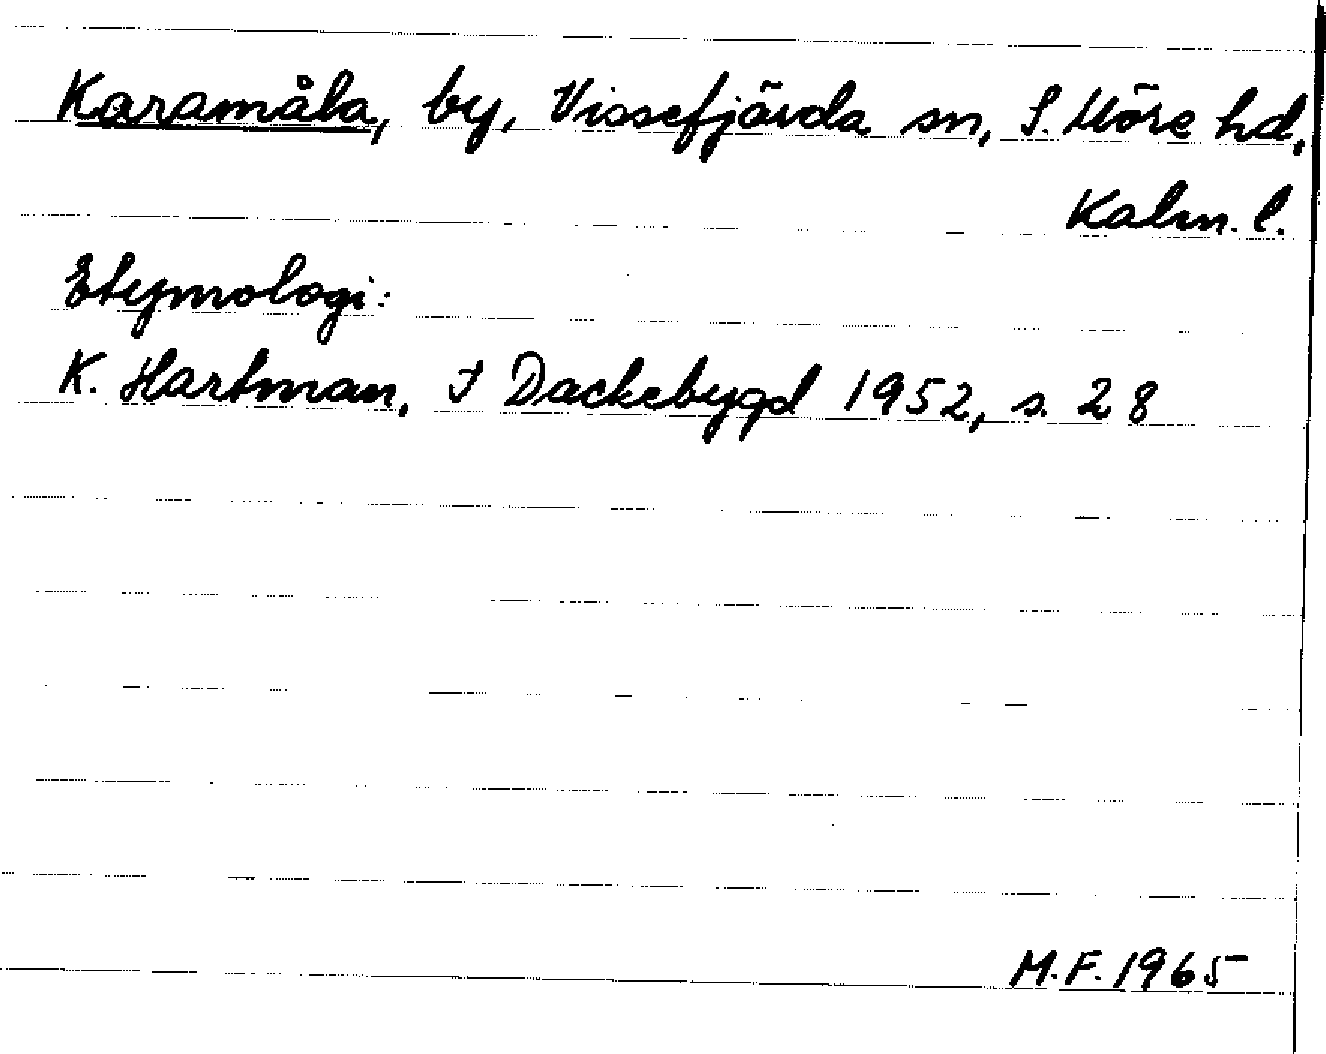 Karamåla, by, Vissefjärda sn, S. Möre hd,
Kalm. l.
Etymologi:
K. Hartman, I Dackebygd 1952, s. 28
M.F. 1965